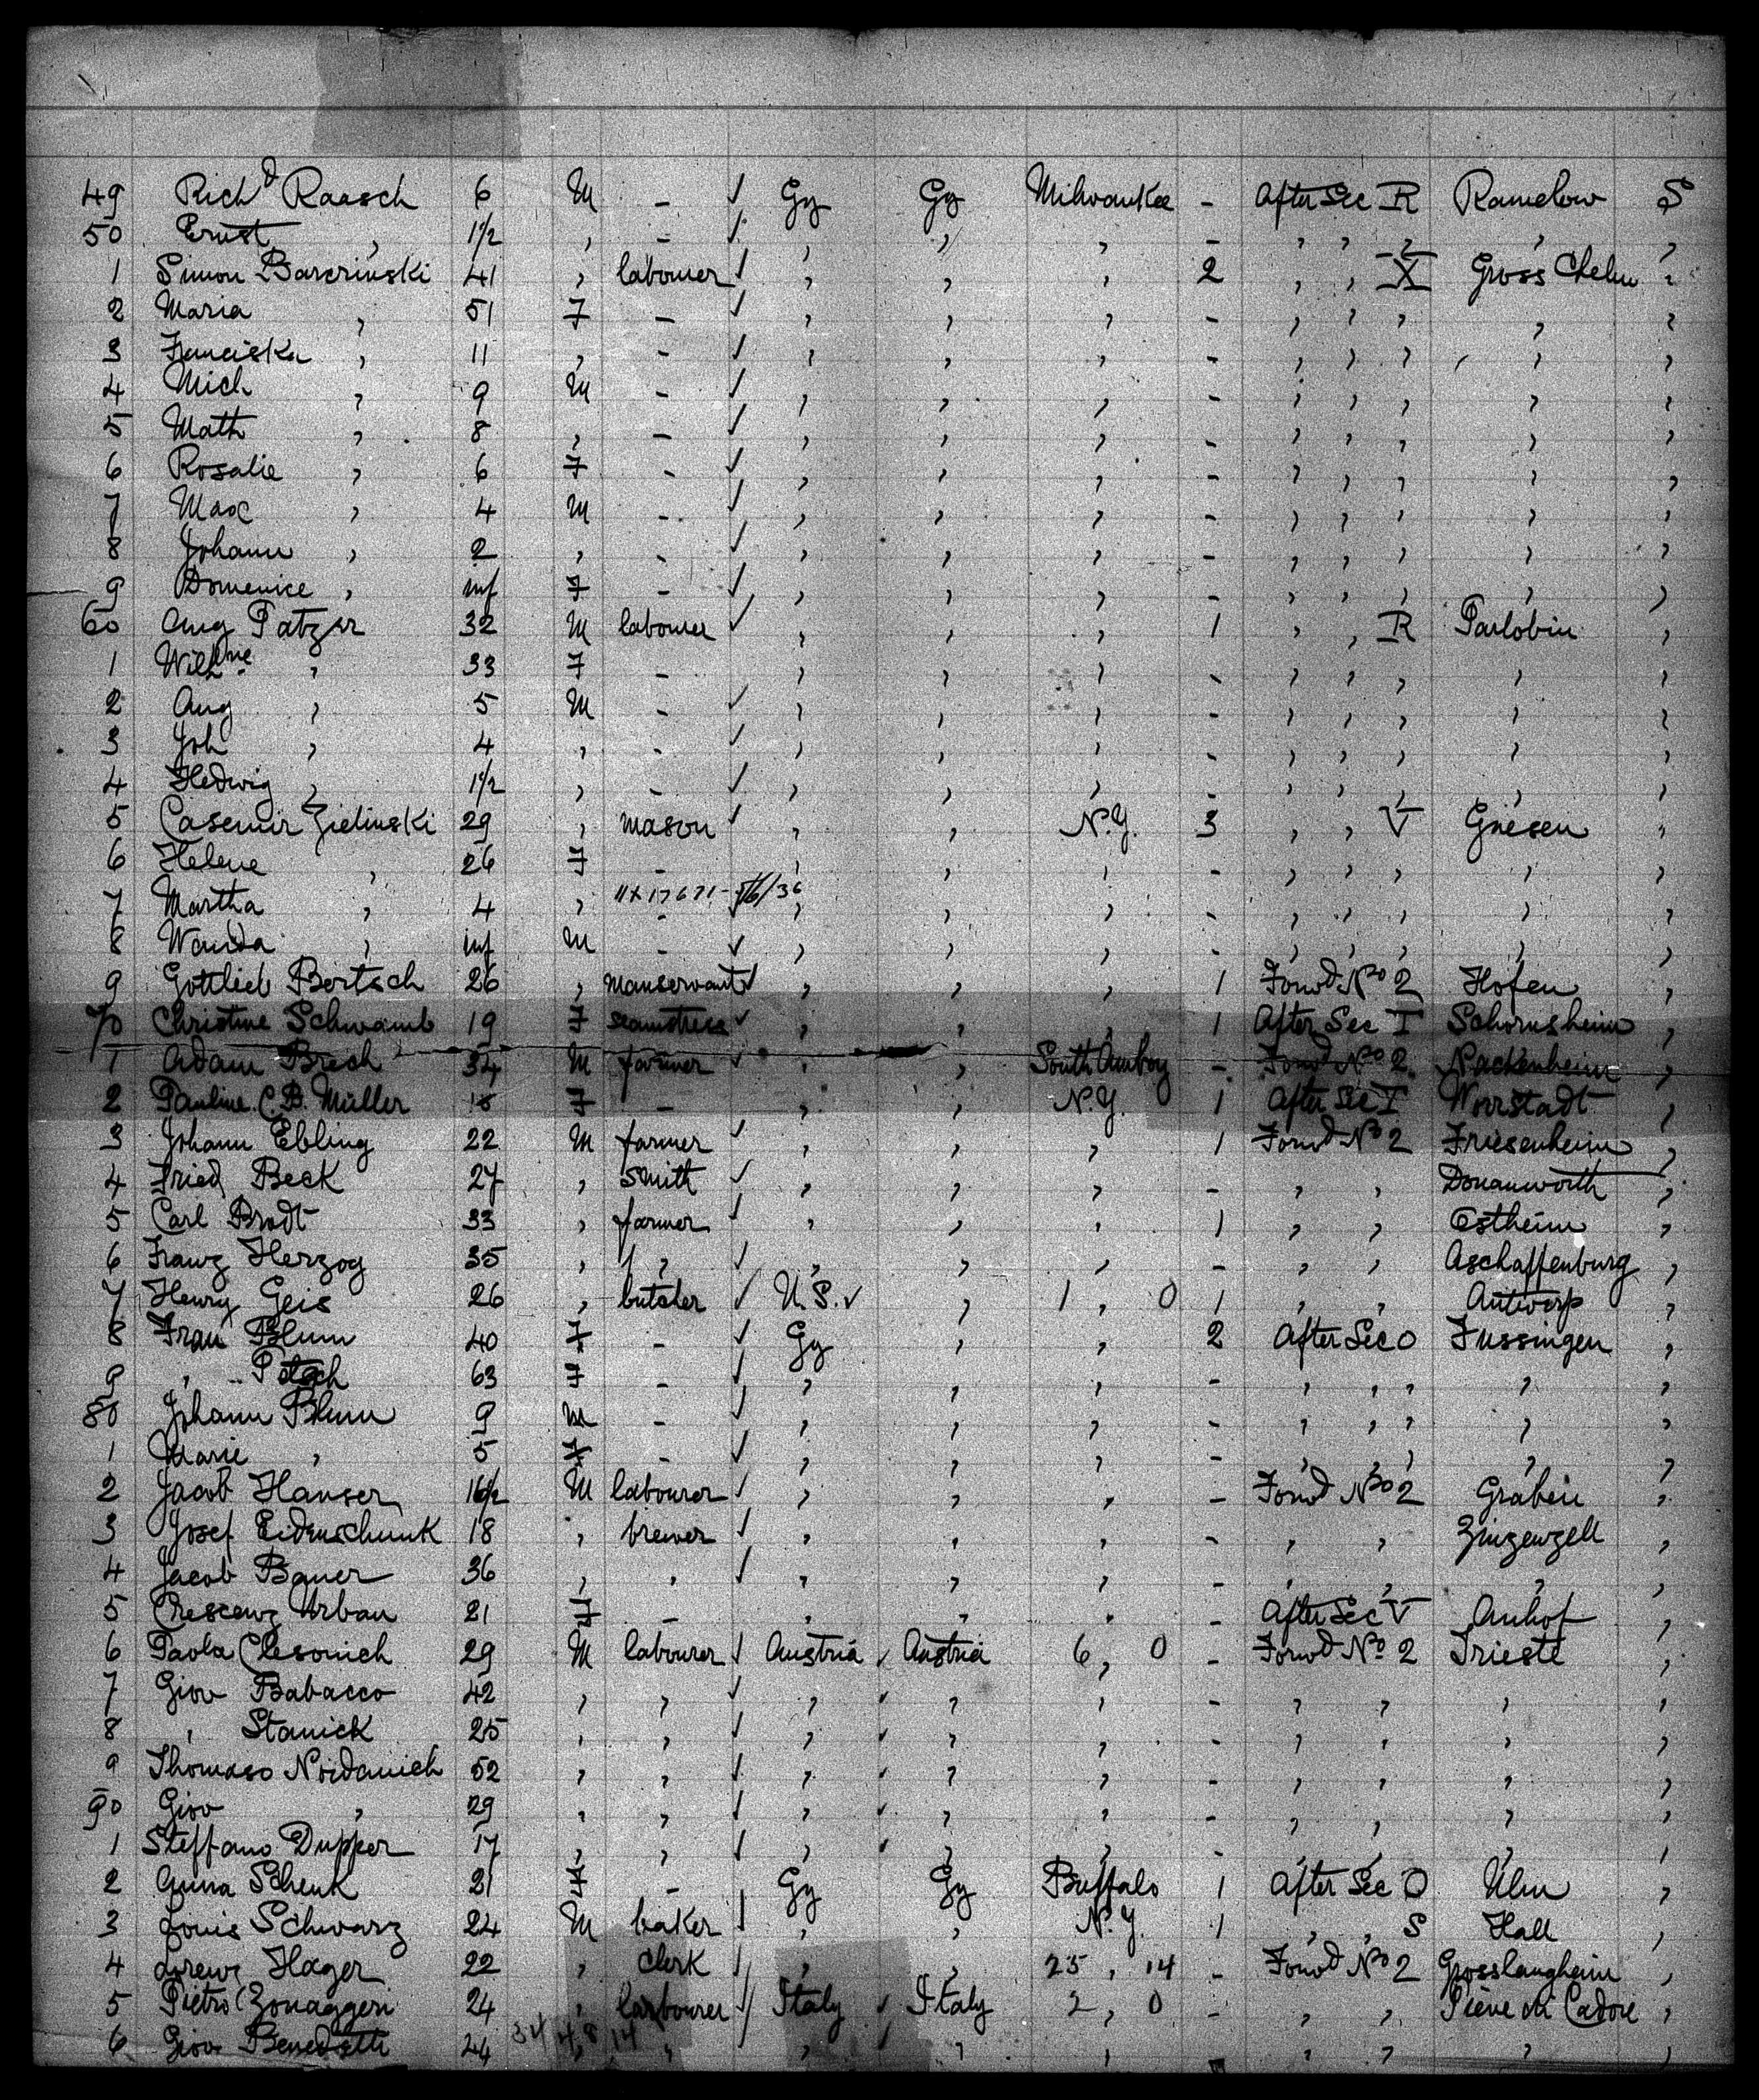 49 Rich^d Raasch 6 M - ✓ Gy Gy Milwaukee - After Sec R Ramelow S
50 Ernst , 1 1/2 , - ✓ , , , - , , , , ,
1 Simon Barcrinski 41 , labourer ✓ , , , 2 , , X Gross Chelm ,
2 Maria , 51 F - ✓ , , , - , , , , ,
3 Franciska , 11 , - ✓ , , , - , , , , ,
4 Mich , 9 M - ✓ , , , - , , , , ,
5 Math , 8 , - ✓ , , , - , , , , ,
6 Rosalie , 6 F - ✓ , , , - , , , , ,
7 Max , 4 M - ✓ , , , - , , , , ,
8 Johann , 2 , - ✓ , , , - , , , , ,
9 Domenice , inf F - ✓ , , , - , , , , ,
60 Aug Patzer 32 M labourer ✓ , , , 1 , , R Parlobin ,
1 Wilh^ne , 33 F - , , , - , , , , ,
2 Aug , 5 M - ✓ , , , - , , , , ,
3 Joh , 4 , - ✓ , , , - , , , , ,
4 Hedwig , 1 1/2 , - ✓ , , , - , , , , ,
5 Casemir Zielinski 29 , mason ✓ , , N.Y. 3 , , V Gnesen ,
6 Helene , 26 F - , , , - , , , , ,
7 Martha , 4 , - ✓ , , , - , , , , ,
8 Wanda , inf M - ✓ , , , - , , , , ,
9 Gottlieb Bertsch 26 , manservant ✓ , , , 1 Forw^d No 2 Hofen ,
70 Christine Schwamb 19 F seamstress ✓ , , , 1 After Sec I Schornsheim ,
1 Adam Brech 34 M farmer ✓ , , South Amboy - Forw^d No 2 Nackenheim ,
2 Pauline C. B. Müller 18 F - , , N.Y. 1 After Sec I Worrstadt ,
3 Johann Ebling 22 M farmer ✓ , , , 1 Forw^d No 2 Friesenheim ,
4 Fried Beck 27 , smith ✓ , , , - , , Donauworth ,
5 Carl Brodt 33 , farmer ✓ , , , 1 , , Ostheim ,
6 Franz Herzog 35 , , ✓ , , , - , , Aschaffenburg ,
7 Henry Geis 26 , butcher ✓ U.S. ✓ , 1 , 0 1 , , Antwerp ,
8 Frau Blum 40 F - ✓ Gy , , 2 After Sec O Fussingen ,
9 , Petsch 63 F - ✓ , , , - , , , , ,
80 Johann Blum 9 M - ✓ , , , - , , , , ,
1 Marie , 5 F - ✓ , , , - , , , , ,
2 Jacob Hauser 16 1/2 M labourer ✓ , , , - Forw^d No 2 Graben ,
3 Josef Eidenschunk 18 , brewer ✓ , , , - , , Zinzenzell ,
4 Jacob Bauer 36 , , ✓ , , , - , , , ,
5 Crescenz Urban 21 F - , , , - After Sec V Anhof ,
6 Paola Clesonich 29 M labourer ✓ Austria ✓ Austria 6 , 0 - Forw^d No 2 Trieste ,
7 Giov Babacco 42 , , ✓ , ✓ , , - , , , ,
8 , Stanick 25 , , ✓ , ✓ , , - , , , ,
9 Thomaso Noidanich 52 , , ✓ , ✓ , , - , , , ,
90 Giov , 29 , , ✓ , ✓ , , - , , , ,
1 Steffano Dupper 17 , , ✓ , ✓ , , - , , , ,
2 Anna Schenk 21 F - Gy Gy Buffalo 1 After Sec O Ulm ,
3 Louis Schwarz 24 M baker ✓ , , N.Y. 1 , , S Hall ,
4 Lorenz Hager 22 , clerk ✓ , , 25 , 14 - Forw^d No 2 Grosslangheim ,
5 Pietro Zonaggeri 24 , labourer ✓ Italy ✓ Italy 2 , 0 - , , Pieve di Cadore ,
6 Giov Benedetti 24 , , , ✓ , , - , , , ,